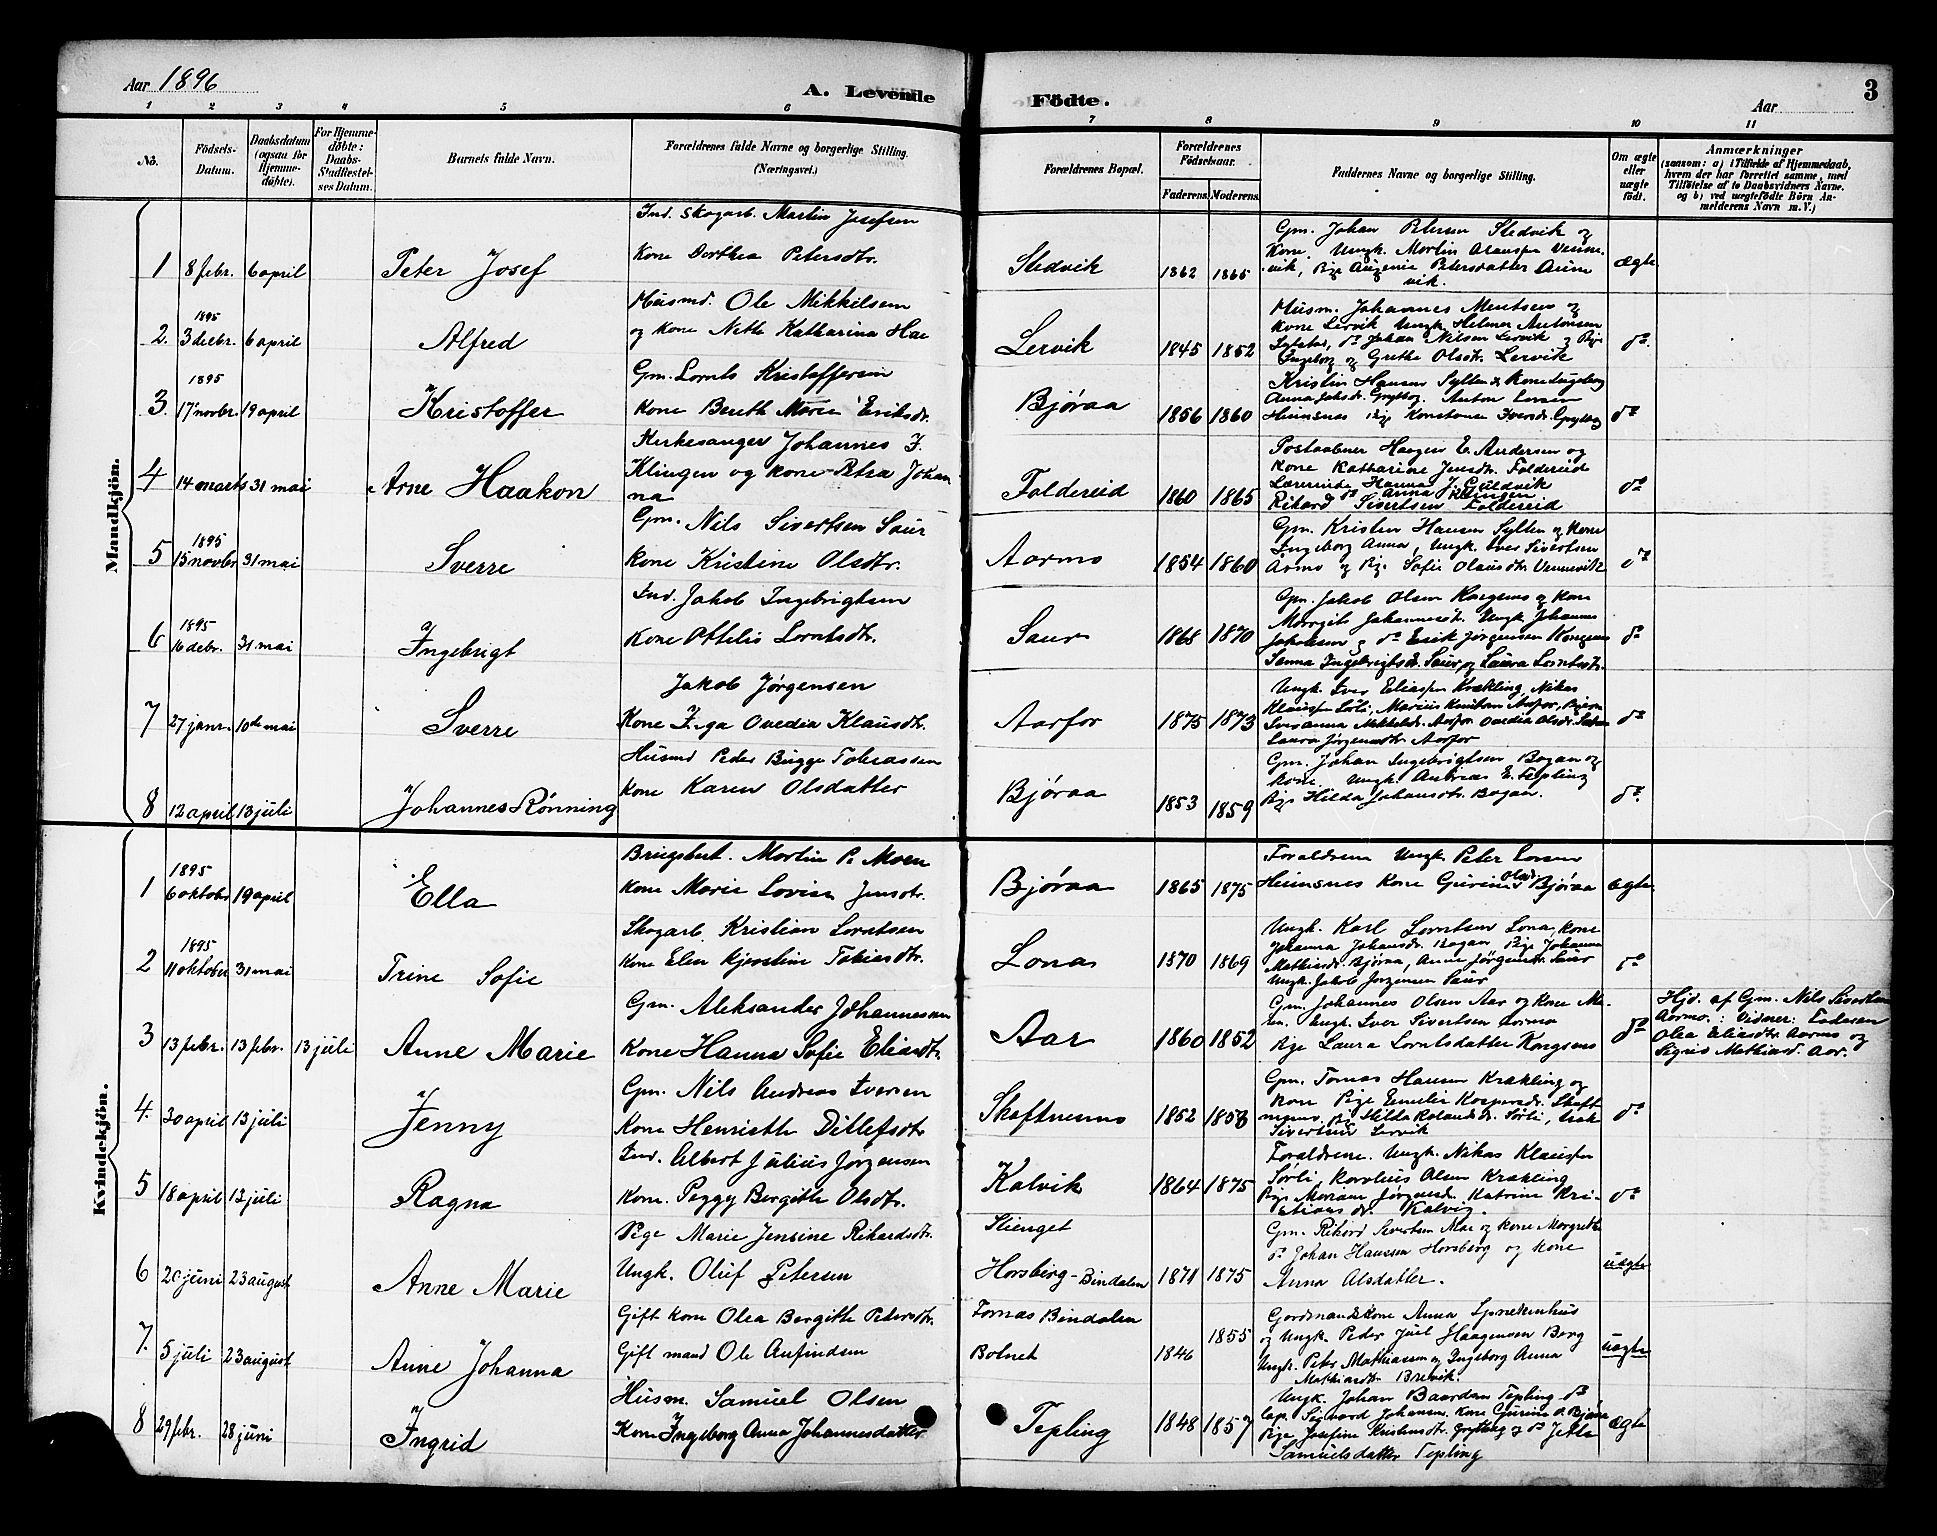 Aar 1896
A. Levende Fødte.
Aar
3
1 2 3 4 5 6 7 8 9 10 11
No.
Fødsels-Datum.
Daabsdatum (ogsaa for Hjemme-døbte).
For Hjemme-døbte: Daabs-Stadfæstel-ses Datum.
Barnets fulde Navn.
Forældrenes fulde Navne og borgerlige Stilling. (Næringsvei.)
Forældrenes Bopæl.
Forældrenes Fødselsaar.
Faderens. Moderens.
Faddernes Navne og borgerlige Stilling.
Om ægte eller uægte født.
Anmærkninger (saasom: a) i Tilfælde af Hjemmedaab, hvem der har forrettet samme, med Tilføielse af to Daabsvidners Navne. og b) ved uægtefødte Børn An-melderens Navn m. V.)
Mandkjøn.
1 8 febr. 6 april Peter Josef
Ind. skogarb. Martin Josefsen
Kone Dorthea Petersdtr.
Stedvik 1862 1865
Gm. Johan Petersen Stedvik og
Kone, Ungk. Martin
Pige Augenie Petersdatter Aune
vik.
ægte
2. 1895 3 debr. 6 april Alfred
Husmd. Ole Mikkelsen
og Kone Katharina
Lervik 1845 1852
Husm. Johannes Mentsen og
Kone Lervik Ungk. Helmer Antonsen
do Johan Nilsen Lervik og Pige
Ingeborg og Grethe Olsdtr. Lervik
do.
3. 1895 17 novbr. 19 april Kristoffer
Gm. Lornts Kristoffersen
Kone Berith Marie Eriksdr.
Bjøraa 1856 1860
Kristen Hansen Sylten & Kone Ingeborg
Anna Anton Lorsen
Heimsnes Pige Konstanse Iversdr.
do
4 14 marts 31 mai Arne Haakon
Kirkesanger Johannes F.
Klingen og kone Petra Johan
na
Foldereid 1860 1865
Postaabner Haagen E. Andersen og
Kone Katharine Jensdtr. Foldereid
Lærerinde Hanna J.
Rikard Sivertsen Foldereid
do
5 1895 15 novbr 31 mai Sverre
Gm. Nils Sivertsen Saur
kone Kristine Olsdtr.
Aarmo 1854 1860
Gm. Kristen Hansen Sylten og Kone
Ingeborg Anna, Ungk. Iver Sivertsen
Aarmo og Pige Sofie Olausdtr. Vennevik
do
6 1895 16 debr. 31 mai Ingebrigt
Ind. Jakob Ingebrigtsen
Kone Ottelie Lorntsdtr.
Saur 1868 1870
Gm. Jakob Olsen Kongsmo og Kone
Margit Johannesdt. Ungk. Johannes
Jakobsen og do Erik Jørgensen Kongsmo
Sanna Ingebrigtsd. Saur og Laura Lorntsdtr.
do
7 27 janr. 10de mai Sverre
Jakob Jørgensen
Kone Inga Ovedia Klausdtr.
Aarfor 1875 1873
Ungk. Iver Eliassen Krækling, Nikas
Klaussen Sørli, Marius Aarfor,
Aarfor Ovedia Olsdr.
Laura Jørgensdtr. Aarfor
do
8 12 april 13 juli Johannes Rønning
Husmd Peder Bugge Tobiassen
Kone Karen Olsdatter
Bjøraa 1853 1859
Gm. Johan Ingebrigtsen Bogan og
Kone Ungk. Andreas E. Tepling
Pige Hilda Johansdtr. Bogan.
do.
Kvindekjøn.
1 1895 6 oktober 19 april Ella
Brugsbest. Martin P. Moen
Kone Marie Lovise Jensdtr.
Bjøraa 1865 1875
Forældrene Ungk. Peter Lorsen
Heimsnes Kone Gurine Olsdr. Bjøraa
ægte
2 1895 11 oktober 31 mai Trine Sofie
Skogarb. Kristian Lorntsen
Kone Elen Kjerstine Tobiasdtr.
Lona 1870 1869
Ungk. Karl Lorntsen Lona, Kone
Johanna Johansdr. Bogan Pige Johanna
Mathiasdr. Bjøraa, Anne Jørgensdr. Saur
Ungk. Jakob Jørgensen Saur
do
3 13 febr. 13 febr. 13 juli Anne Marie
Gm. Aleksander Johannessen
Kone Hanna Sofie Eliasdtr
Aar 1860 1852
Gm. Johannes Olsen Aar og Kone Ma-
ren. Ungk. Iver Sivertsen Aarmo
Pige Laura Lorntsdatter Kongsmo
do
Hjd. af Gm. Nils Sivertsen
Aarmo.: Vidner: Fadesen
Olea Eliasdtr Aarmo og
Sigrid Mathiasd. Aar.
4. 30 april 13 juli Jenny
Gm. Nils Andreas Iversen
Kone Henriette Ditlefsdtr
Skaftnemo 1852 1858
Gm. Tomas Hansen Krækling og
Kone Pige Emelie Kaspersdr. Skaft
nemo, Pig Hilda Rolandsdr. Sørli, Isak
Sivertsen Lervik
do
5 18 april 13 juli Ragna
Ind. Albert Julius Jørgensen
Kone. Peggy Bergitte Olsdtr.
Kalvik 1864 1875
Forældrene. Ungk. Nikas Klaussen
Sørli Karolius Olsen Krækling
Pige Mariane Jørgensdr. Katrine Kri-
stiansdr. Kalvig.
do
6 20 juni 23 august Anne Marie
Pige Marie Jensine Rikardsdtr.
Ungk. Oluf Petersen
Stienget
Horsberg-Bindalen 1871 1875
Gm. Rikard Sivertsen Moe og Kone Margrethe
do Johan Hanssen Horsberg og Kone
Anna Olsdatter.
uægte
7. 5 juli 23 august Anne Johanna
Gift Kone Olea Bergitte Petersdtr.
Gift mand Ole Anfindsen
Tornæs Bindalen
Bolnet 1846 1855
Gardmandskone Anna
og Ungk. Peder Juel Haagensen Berg
Ungk. Peter Mathiassen og Ingeborg Anna
Mathiasdtr Brevik.
uægte
8 29 febr. 28 juni Ingrid
Husm. Samuel Olsen
Kone Ingeborg Anna Johannesdatter
Tepling 1848 1857
Ungk. Johan Baardsen Tepling do
Sigvard Johansen. Kone Gurine O. Bjøraa
Pige Josefine Kristensdtr. og do Jetta
Samuelsdatter Tepling
ægte